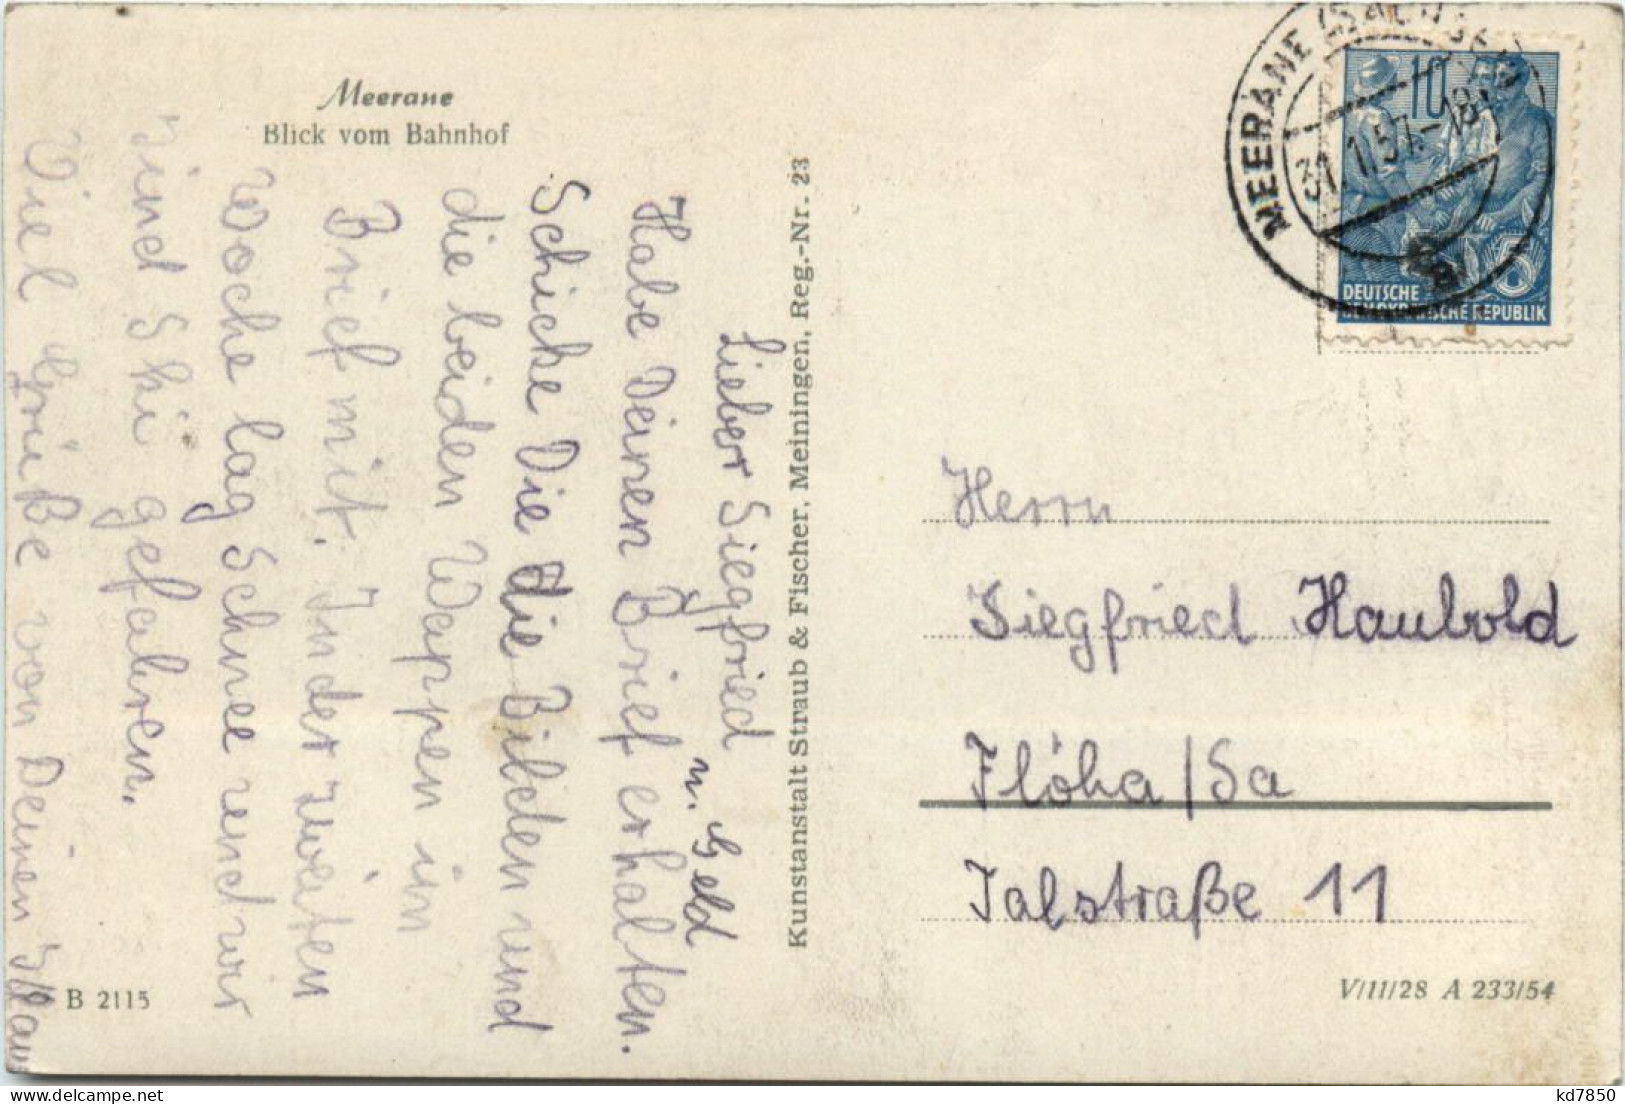 Meerane
Blick vom Bahnhof
Lieber Siegfried
Habe Deinen Brief erhalten.
u. Geld
Schicke Die die Bilden und
die beiden Wappen im
Brief mit. In der zweiten
Woche lag Schnee und wir
sind Ski gefahren.
Viel Grüße von Deinen Klaus
B 2115
Kunstanstalt Straub & Fischer, Meiningen, Reg.-Nr. 23
MEERANE (SACHSEN)
31.1.57.-18
10
DEUTSCHE
DEMOKRATISCHE REPUBLIK
Herrn
Siegfried Haubold
Flöha/Sa
Talstraße 11
V/11/28 A 233/54
kd7850